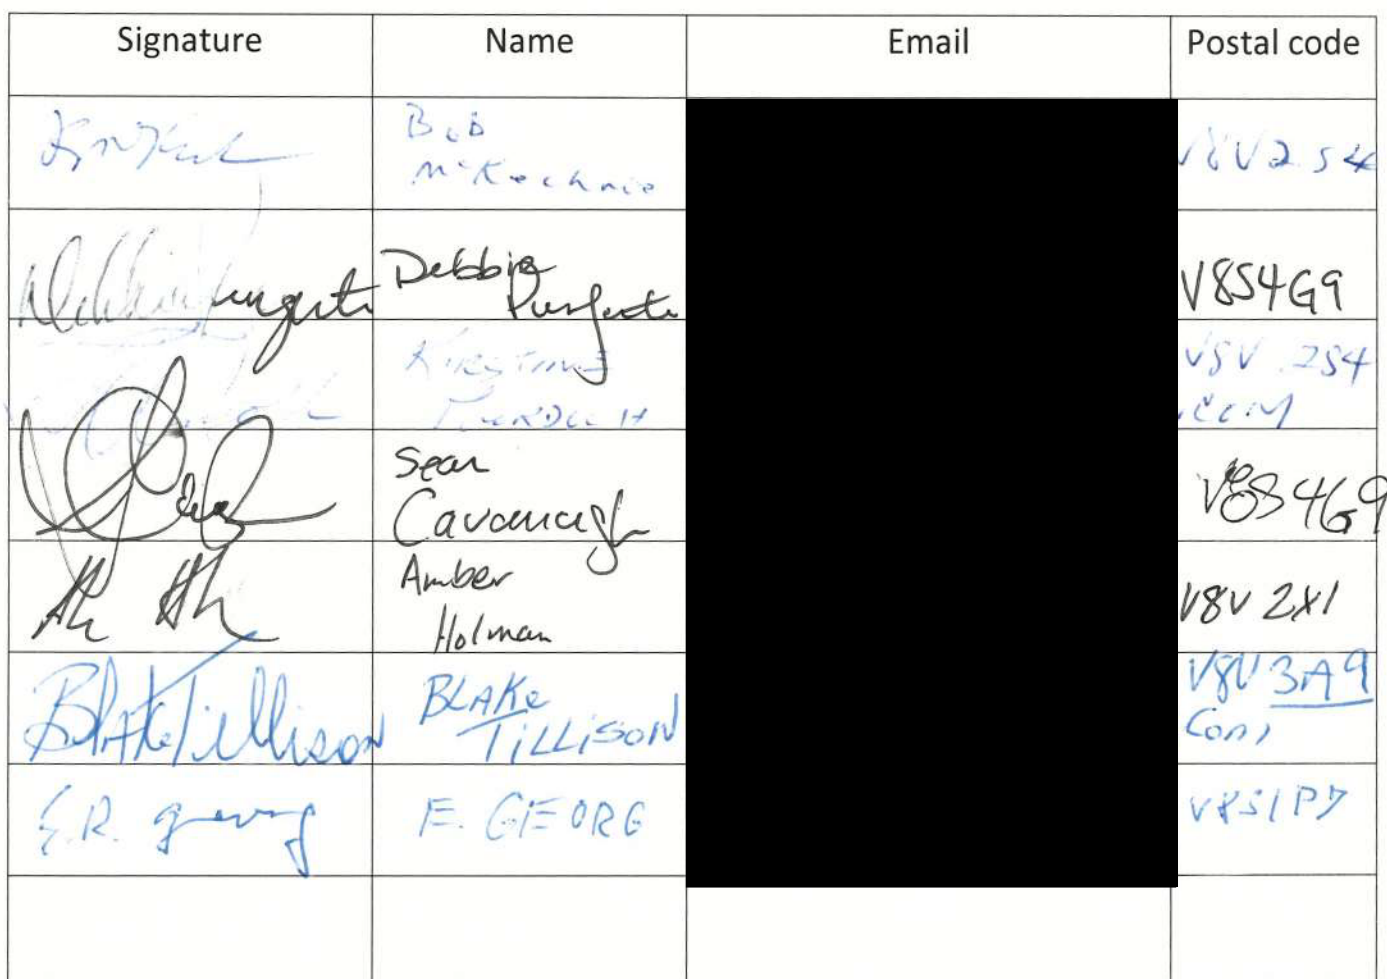 Signature Name Email Postal code
Bob
McKechnie V8V2S4
Debbie V8S4G9
Kirstine V8V 2S4
Sean
Cavanagh V8S 4G9
Amber
Holman V8V 2X1
Blake Tillison BLAKE V8V 3A9
TILLISON
E.R. E. GEORG V8S1P7